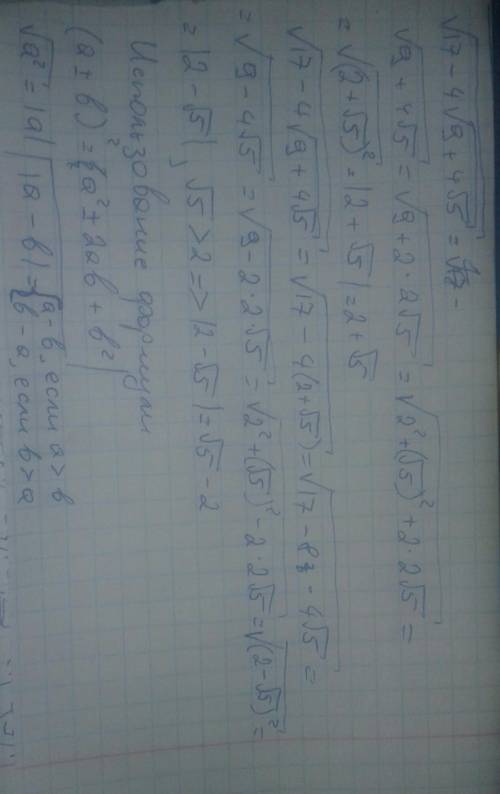 √(17 - 4√(9 + 4√5)) = √17 -
√(9 + 4√5) = √(9 + 2·2√5) = √(2² + (√5)² + 2·2√5) =
= √((2 + √5)²) = |2 + √5| = 2 + √5
√(17 - 4√(9 + 4√5)) = √(17 - 4(2 + √5)) = √(17 - 8 - 4√5) =
= √(9 - 4√5) = √(9 - 2·2√5) = √(2² + (√5)² - 2·2√5) = √((2 - √5)²) =
= |2 - √5|, √5 > 2 => |2 - √5| = √5 - 2
Использование формул
(a ± b)² = a² ± 2ab + b²
√a² = |a| |a - b| = { a - b, если a > b
b - a, если b > a